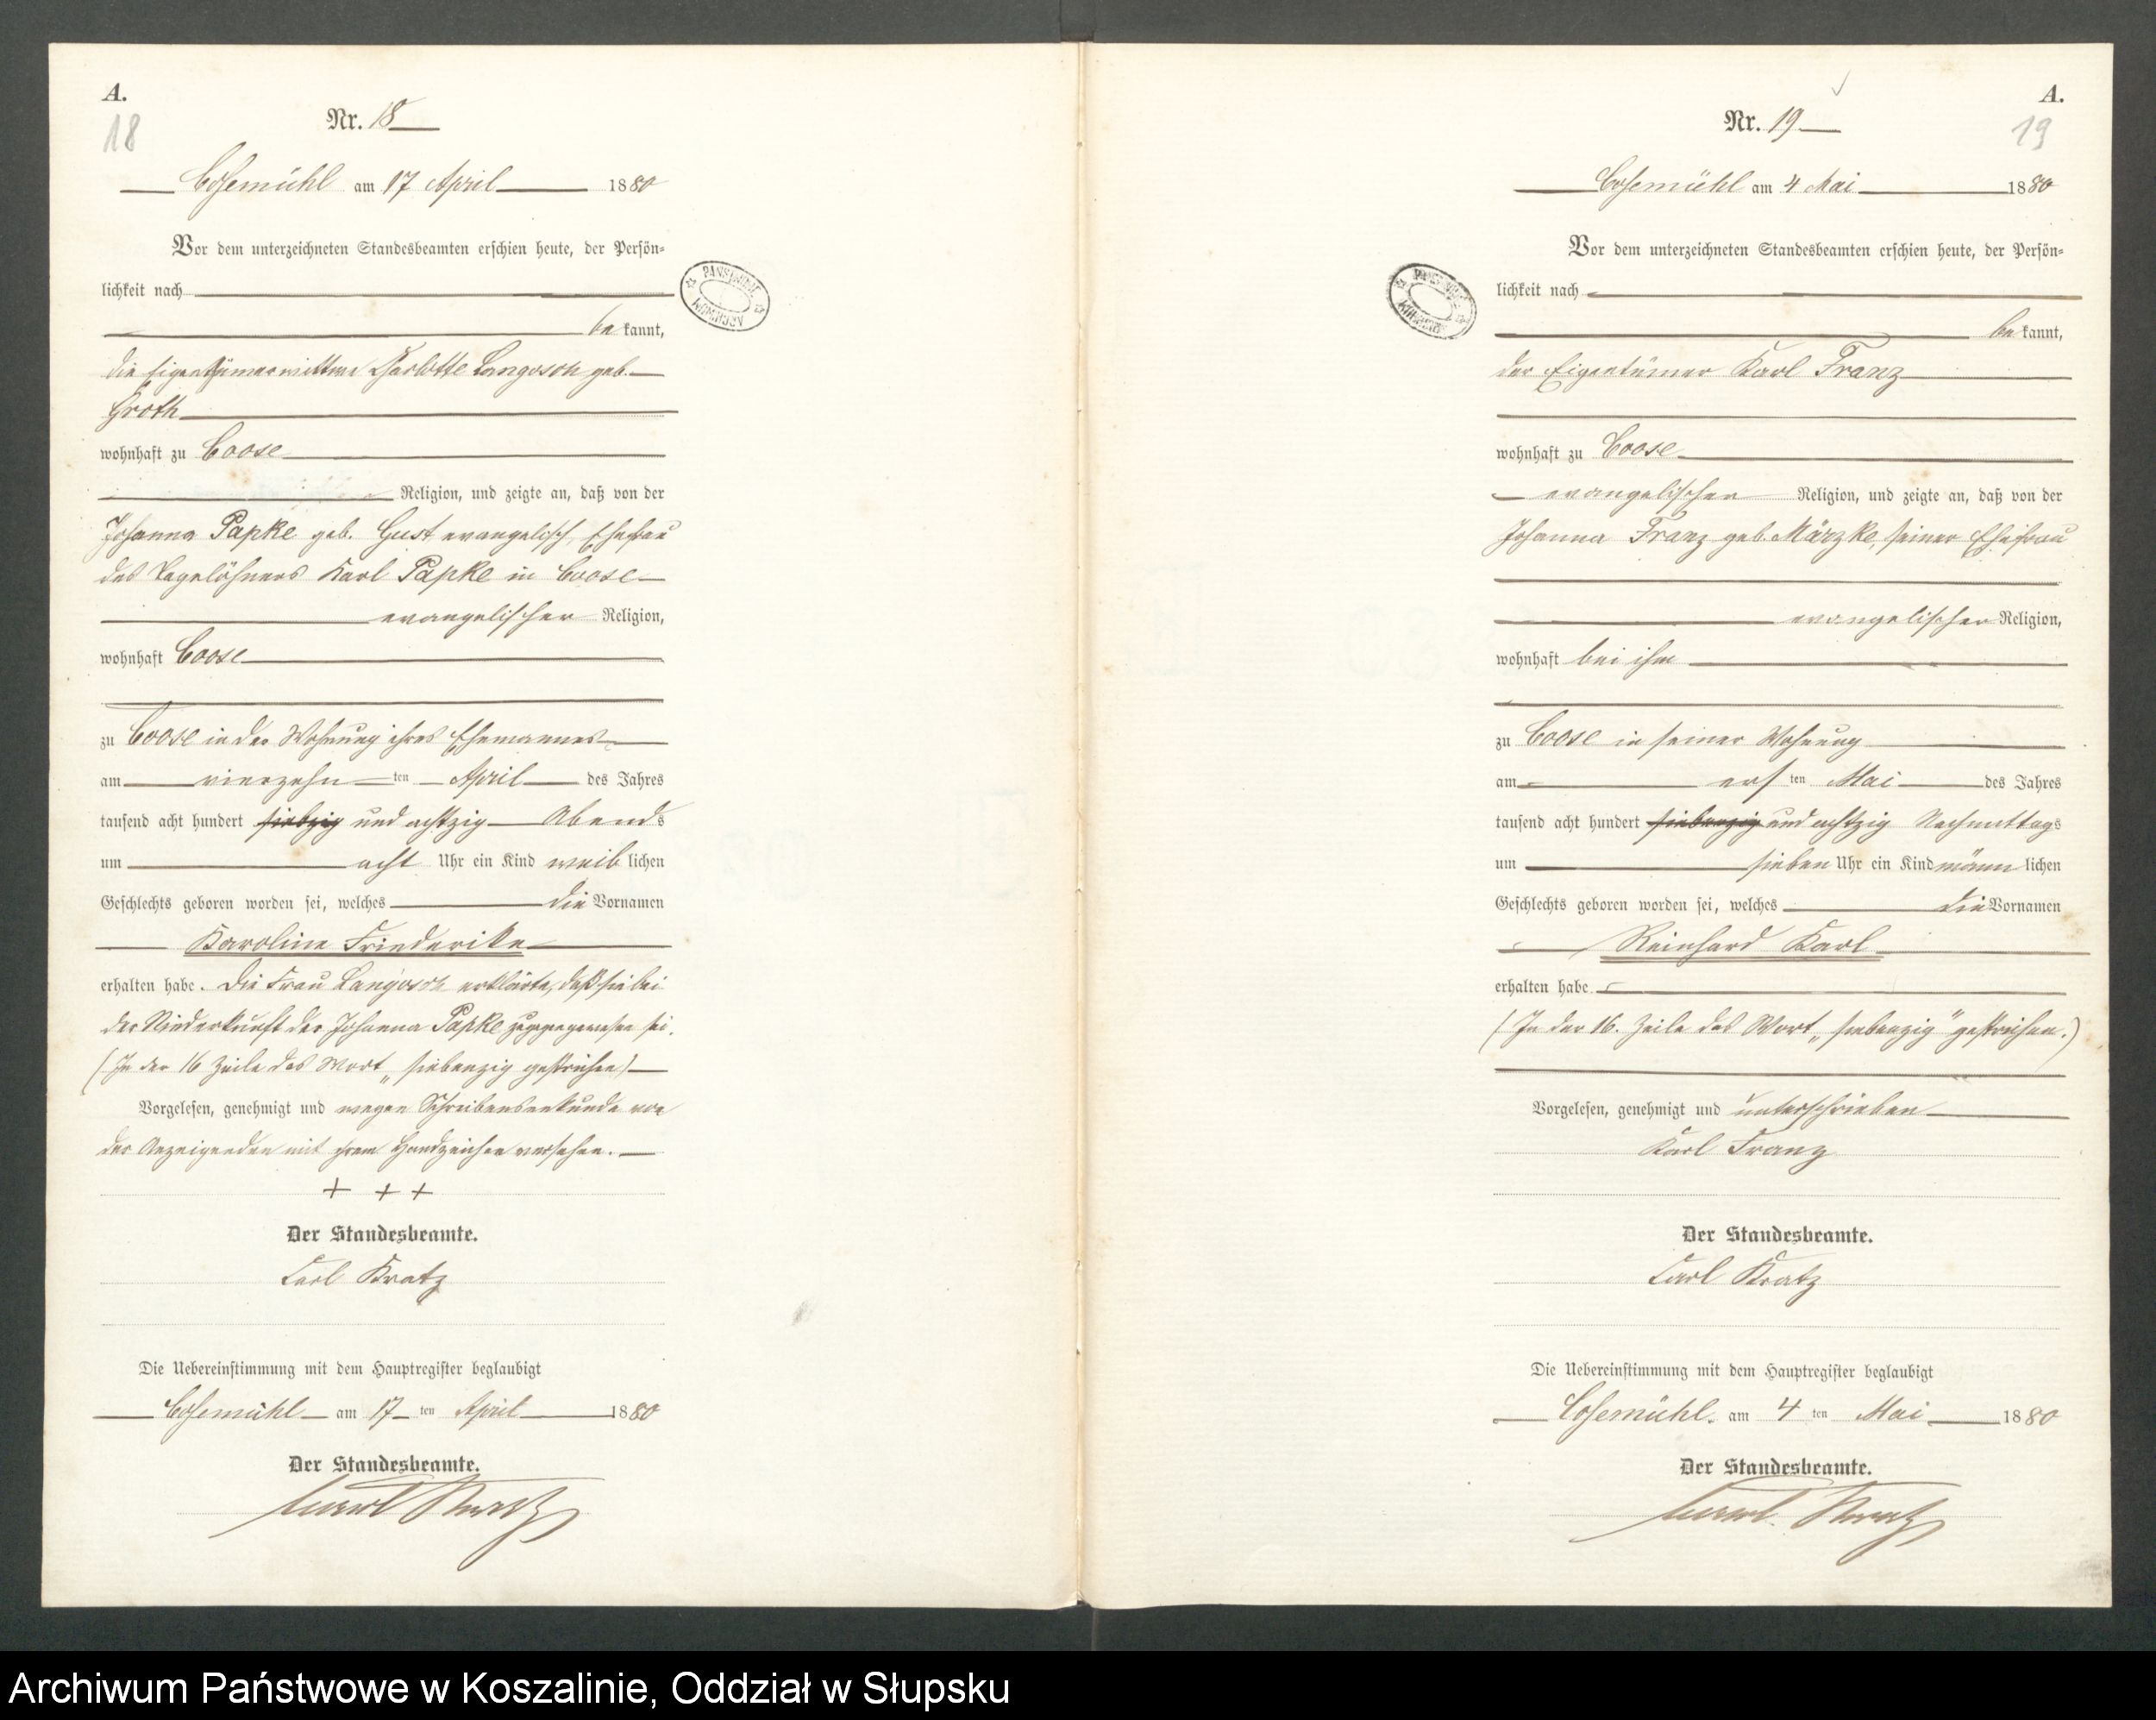 A.
18
Nr. 18
Cosemühl am 17 April 1880
Vor dem unterzeichneten Standesbeamten erschien heute, der Persön-
lichkeit nach
bekannt,
die Eigenthümerwittwe Charlotte Langosch geb.
Groth
wohnhaft zu Coose
Religion, und zeigte an, daß von der
Johanna Papke geb. Gust evangelisch, Ehefrau
des Tagelöhners Karl Papke in Coose
evangelischer Religion,
wohnhaft Coose
zu Coose in der Wohnung ihres Ehemannes
am vierzehnten April des Jahres
tausend acht hundert siebzig und achtzig Abends
um acht Uhr ein Kind weiblichen
Geschlechts geboren worden sei, welches die Vornamen
Karoline Friederike
erhalten habe. Die Frau Langosch erklärte, daß sie bei
der Niederkunft der Johanna Papke zugegen gewesen sei.
(In der 16 Zeile das Wort „siebenzig gestrichen)
Vorgelesen, genehmigt und wegen Schreibensunkunde von
der Anzeigenden mit ihrem Handzeichen versehen.
+ + +
Der Standesbeamte.
Carl Kratz
Die Uebereinstimmung mit dem Hauptregister beglaubigt
Cosemühl am 17ten April 1880
Der Standesbeamte.
Carl Kratz
PAŃSTWOWE ARCHIWUM
A.
19
Nr. 19
Cosemühl am 4 Mai 1880
Vor dem unterzeichneten Standesbeamten erschien heute, der Persön-
lichkeit nach
bekannt,
der Eigentümer Karl Franz
wohnhaft zu Coose
evangelischer Religion, und zeigte an, daß von der
Johanna Franz geb. Märzke, seiner Ehefrau
evangelischer Religion,
wohnhaft bei ihm
zu Coose in seiner Wohnung
am ersten Mai des Jahres
tausend acht hundert siebenzig und achtzig Nachmittags
um sieben Uhr ein Kind männlichen
Geschlechts geboren worden sei, welches die Vornamen
Reinhard Karl
erhalten habe.
(In der 16. Zeile das Wort „siebenzig" gestrichen.)
Vorgelesen, genehmigt und unterschrieben
Karl Franz
Der Standesbeamte.
Carl Kratz
Die Uebereinstimmung mit dem Hauptregister beglaubigt
Cosemühl. am 4 ten Mai 1880
Der Standesbeamte.
Carl Kratz
Archiwum Państwowe w Koszalinie, Oddział w Słupsku